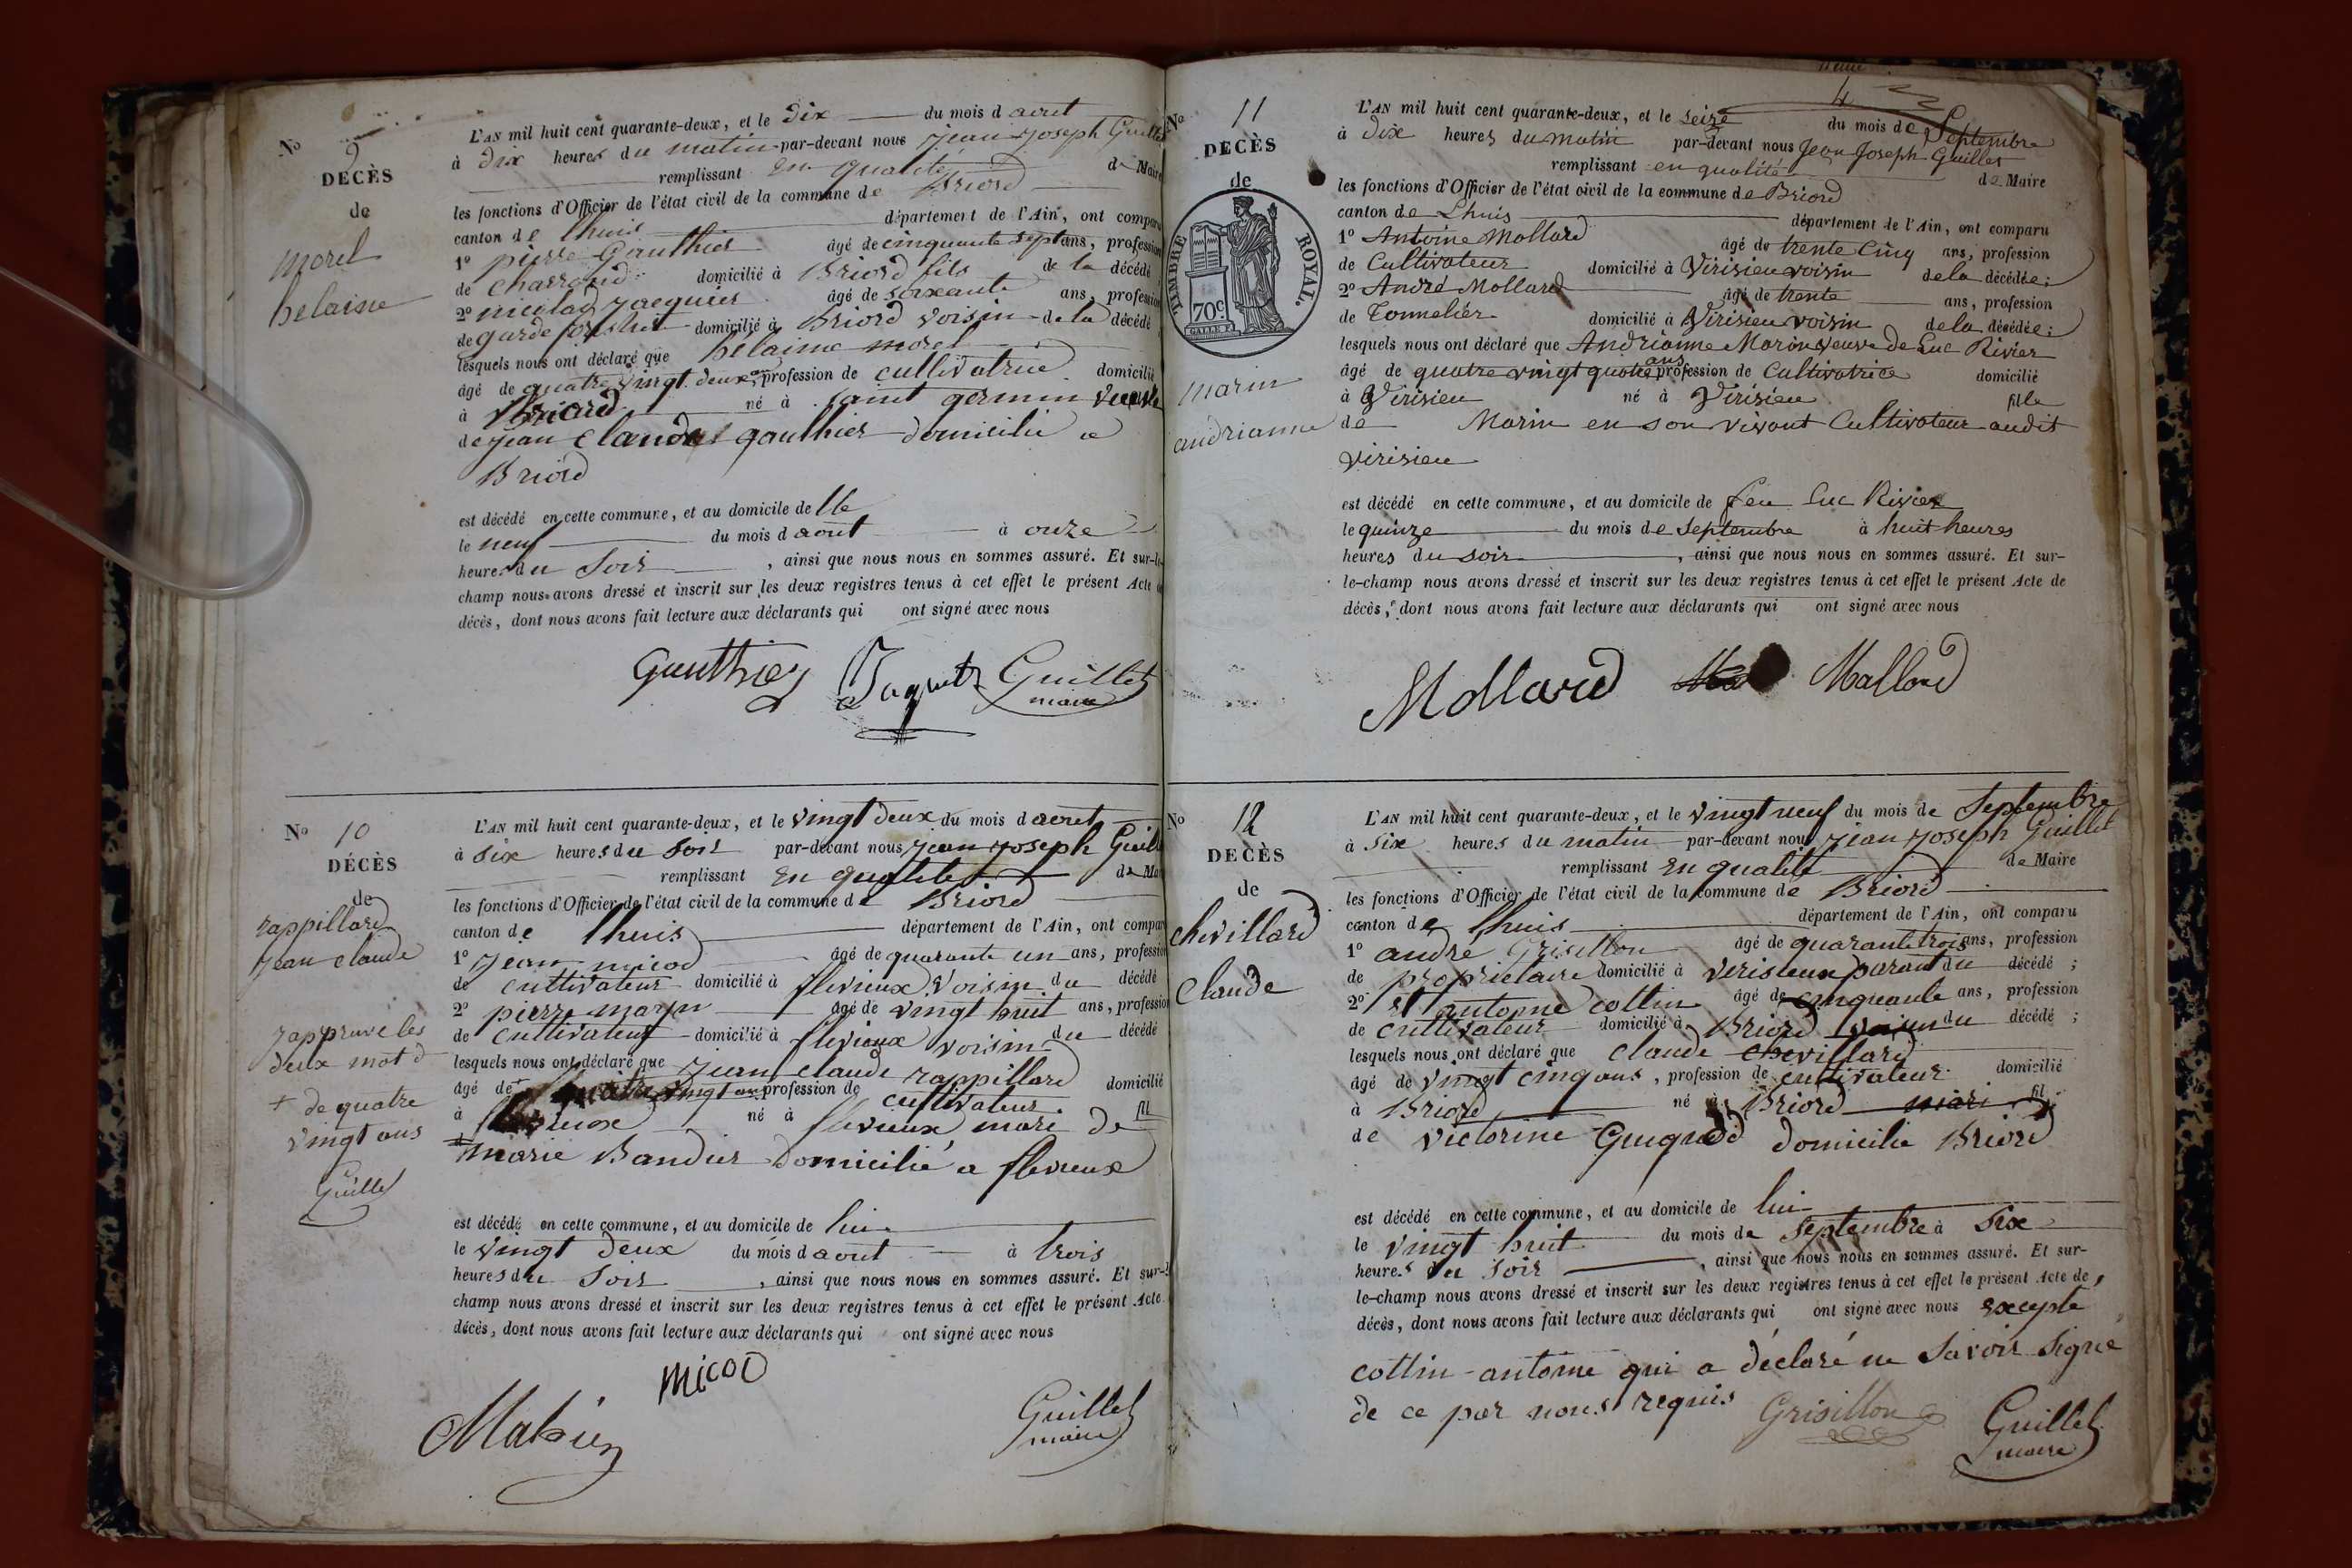 No 9
DÉCÈS
de
morel
helaine
L'AN mil huit cent quarante-deux, et le dix du mois d aout
à dix heures du matin par-devant nous jean joseph Guillet
remplissant en qualité de Maire
les fonctions d'Officier de l'état civil de la commune de Briord
canton de lhuis département de l'Ain, ont comparu
1o pierre Gauthier âgé de cinquante sept ans, profession
de charron domicilié à Briord fils de la décédé
2o nicolas jacquier âgé de soixante ans, profession
de garde forestier domicilié à Briord voisin de la décédé
lesquels nous ont déclaré que hélaine morel
âgé de quatre vingt deux ans, profession de cultivatrice domicilié
à Briord né à saint germin veuve
de jean claude gauthier domicilié a
Briord
est décédé en cette commune, et au domicile de lle
le neuf du mois d aout à onze
heures du soir, ainsi que nous nous en sommes assuré. Et sur-le-
champ nous avons dressé et inscrit sur les deux registres tenus à cet effet le présent Acte
décès, dont nous avons fait lecture aux déclarants qui ont signé avec nous
Gauthier Guillet
maire
No 10
DÉCÈS
de
rappillard
jean claude
jappruve les
deux mot d
+ de quatre
vingt ans
Guillet
L'AN mil huit cent quarante-deux, et le vingt deux du mois d aout
à six heures du soir par-devant nous jean joseph Guill
remplissant en qualité de Mai
les fonctions d'Officier de l'état civil de la commune de Briord
canton de lhuis département de l'Ain, ont compar
1o jean micod âgé de quarante un ans, profession
de cultivateur domicilié à flevieux voisin du décédé
2o pierre âgé de vingt huit ans, profession
de cultivateur domicilié à flevieux voisin du décédé
lesquels nous ont déclaré que jean claude rappillard
âgé de + quatre vingt ans, profession de cultivateur domicilié
à flevieux né à flevieux mari de fil
marie Bandier domicilié a flevieux
est décédé en cette commune, et au domicile de lui
le vingt deux du mois d aout à trois
heures du soir, ainsi que nous nous en sommes assuré. Et sur-l
champ nous avons dressé et inscrit sur les deux registres tenus à cet effet le présent Acte
décès, dont nous avons fait lecture aux déclarants qui ont signé avec nous
micod
Guillet
maire
No 11
DÉCÈS
de
TIMBRE ROYAL.
70c
marin
andrianne
L'AN mil huit cent quarante-deux, et le seize du mois de Septembre
à dix heures du matin par-devant nous Jean Joseph Guillet
remplissant en qualité de Maire
les fonctions d'Officier de l'état civil de la commune de Briord
canton de Lhuis département de l'Ain, ont comparu
1o Antoine Mollard âgé de trente Cinq ans, profession
de Cultivateur domicilié à Virisieu voisin de la décédée;
2o André Mollard âgé de trente ans, profession
de Tonnelier domicilié à Virisieu voisin de la décédée;
lesquels nous ont déclaré que Andrianne Marin veuve de Luc Rivier
âgé de quatre vingt quatre ans profession de Cultivatrice domicilié
à Virisieu né à Virisieu fille
de Marin en son vivant Cultivateur audit
virisieu
est décédé en cette commune, et au domicile de feu Luc Rivier
le quinze du mois de Septembre à huit heures
heures du soir, ainsi que nous nous en sommes assuré. Et sur-
le-champ nous avons dressé et inscrit sur les deux registres tenus à cet effet le présent Acte de
décès, dont nous avons fait lecture aux déclarants qui ont signé avec nous
Mollard Mollard
No 12
DÉCÈS
de
chevillard
Claude
L'AN mil huit cent quarante-deux, et le vingt neuf du mois de Septembre
à six heures du matin par-devant nous jean joseph Guillet
remplissant en qualité de Maire
les fonctions d'Officier de l'état civil de la commune de Briord
canton de lhuis département de l'Ain, ont comparu
1o andré Grisillon âgé de quarante trois ans, profession
de propriétaire domicilié à verisieux parant du décédé;
2o et antoine cottin âgé de cinquante ans, profession
de cultivateur domicilié à Briord voisin du décédé;
lesquels nous ont déclaré que claude chevillard
âgé de vingt cinq ans, profession de cultivateur domicilié
à Briord né à Briord mari fil
de victorine Guiguod domicilié Briord
est décédé en cette commune, et au domicile de lui
le vingt huit du mois de septembre à six
heures du soir, ainsi que nous nous en sommes assuré. Et sur-
le-champ nous avons dressé et inscrit sur les deux registres tenus à cet effet le présent Acte de
décès, dont nous avons fait lecture aux déclarants qui ont signé avec nous excepte
cottin antoine qui a déclaré ne savoir signé
de ce par nous requis Grisillon Guillet
maire